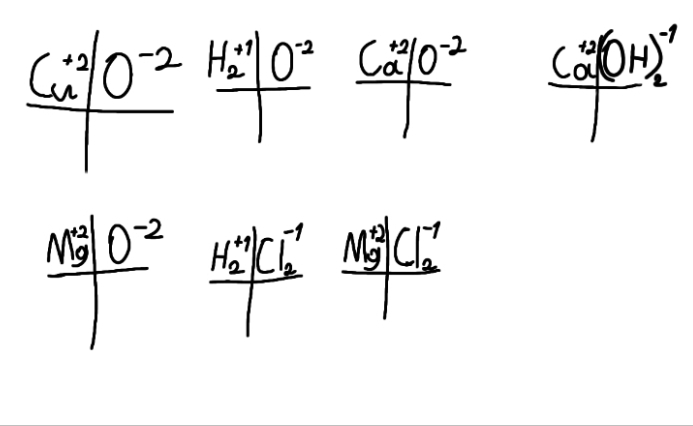 Cu⁺² | O⁻² H₂⁺¹ | O⁻² Ca⁺² | O⁻² Ca⁺² | (OH)₂⁻¹
Mg⁺² | O⁻² H₂⁺¹ | Cl₂⁻¹ Mg⁺² | Cl₂⁻¹